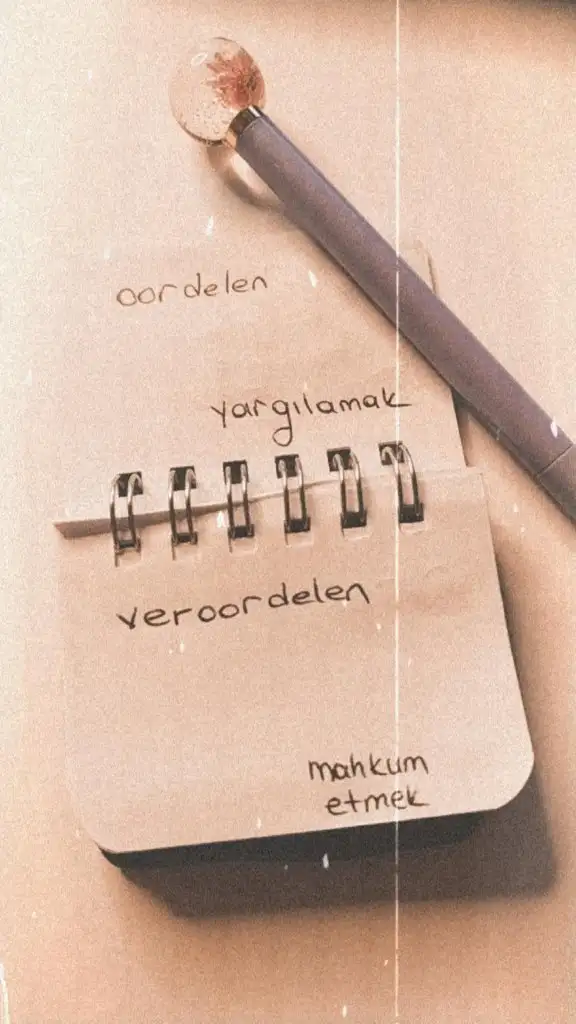 oordelen
yargılamak
veroordelen
mahkum
etmek